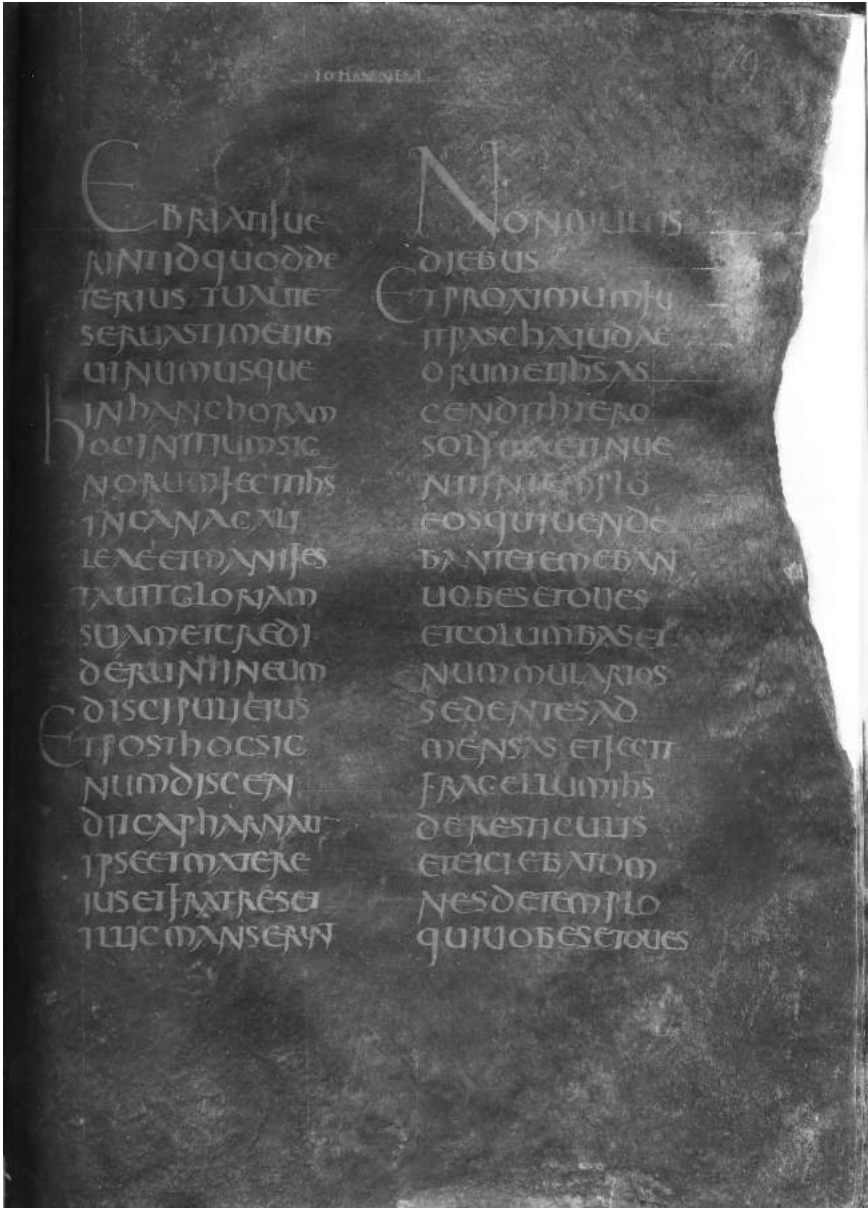 IOHANNEM
19
EBRIATI FUE
RINT ID QUOD DE
TERIUS TU AUTE
SERUASTI MELIUS
UINUM USQUE
IN HANC HORAM
HOC INITIUM SIG
NORUM FECIT IHS
IN CANA GALI
LEAE ET MANIFES
TAUIT GLORIAM
SUAM ET CREDI
DERUNT IN EUM
DISCIPULI EIUS
ET POST HOC SIG
NUM DISCEN
DIT CAPHARNAU
IPSE ET MATER E
IUS ET FRATRES ET
ILLIC MANSERUNT
NON MULTIS
DIEBUS
ET PROXIMUM FU
IT PASCHA IUDAE
ORUM ET IHS AS
CENDIT HIERO
SOLYMA ET INUE
NIT IN TEMPLO
EOS QUI UENDE
BANT ET EMEBAN
UOBES ET OUES
ET COLUMBAS ET
NUMMULARIOS
SEDENTES AD
MENSAS ET FECIT
FRAGELLUM IHS
DE RESTICULIS
ET EICIEBAT OM
NES DE TEMPLO
QUI UOBES ET OUES